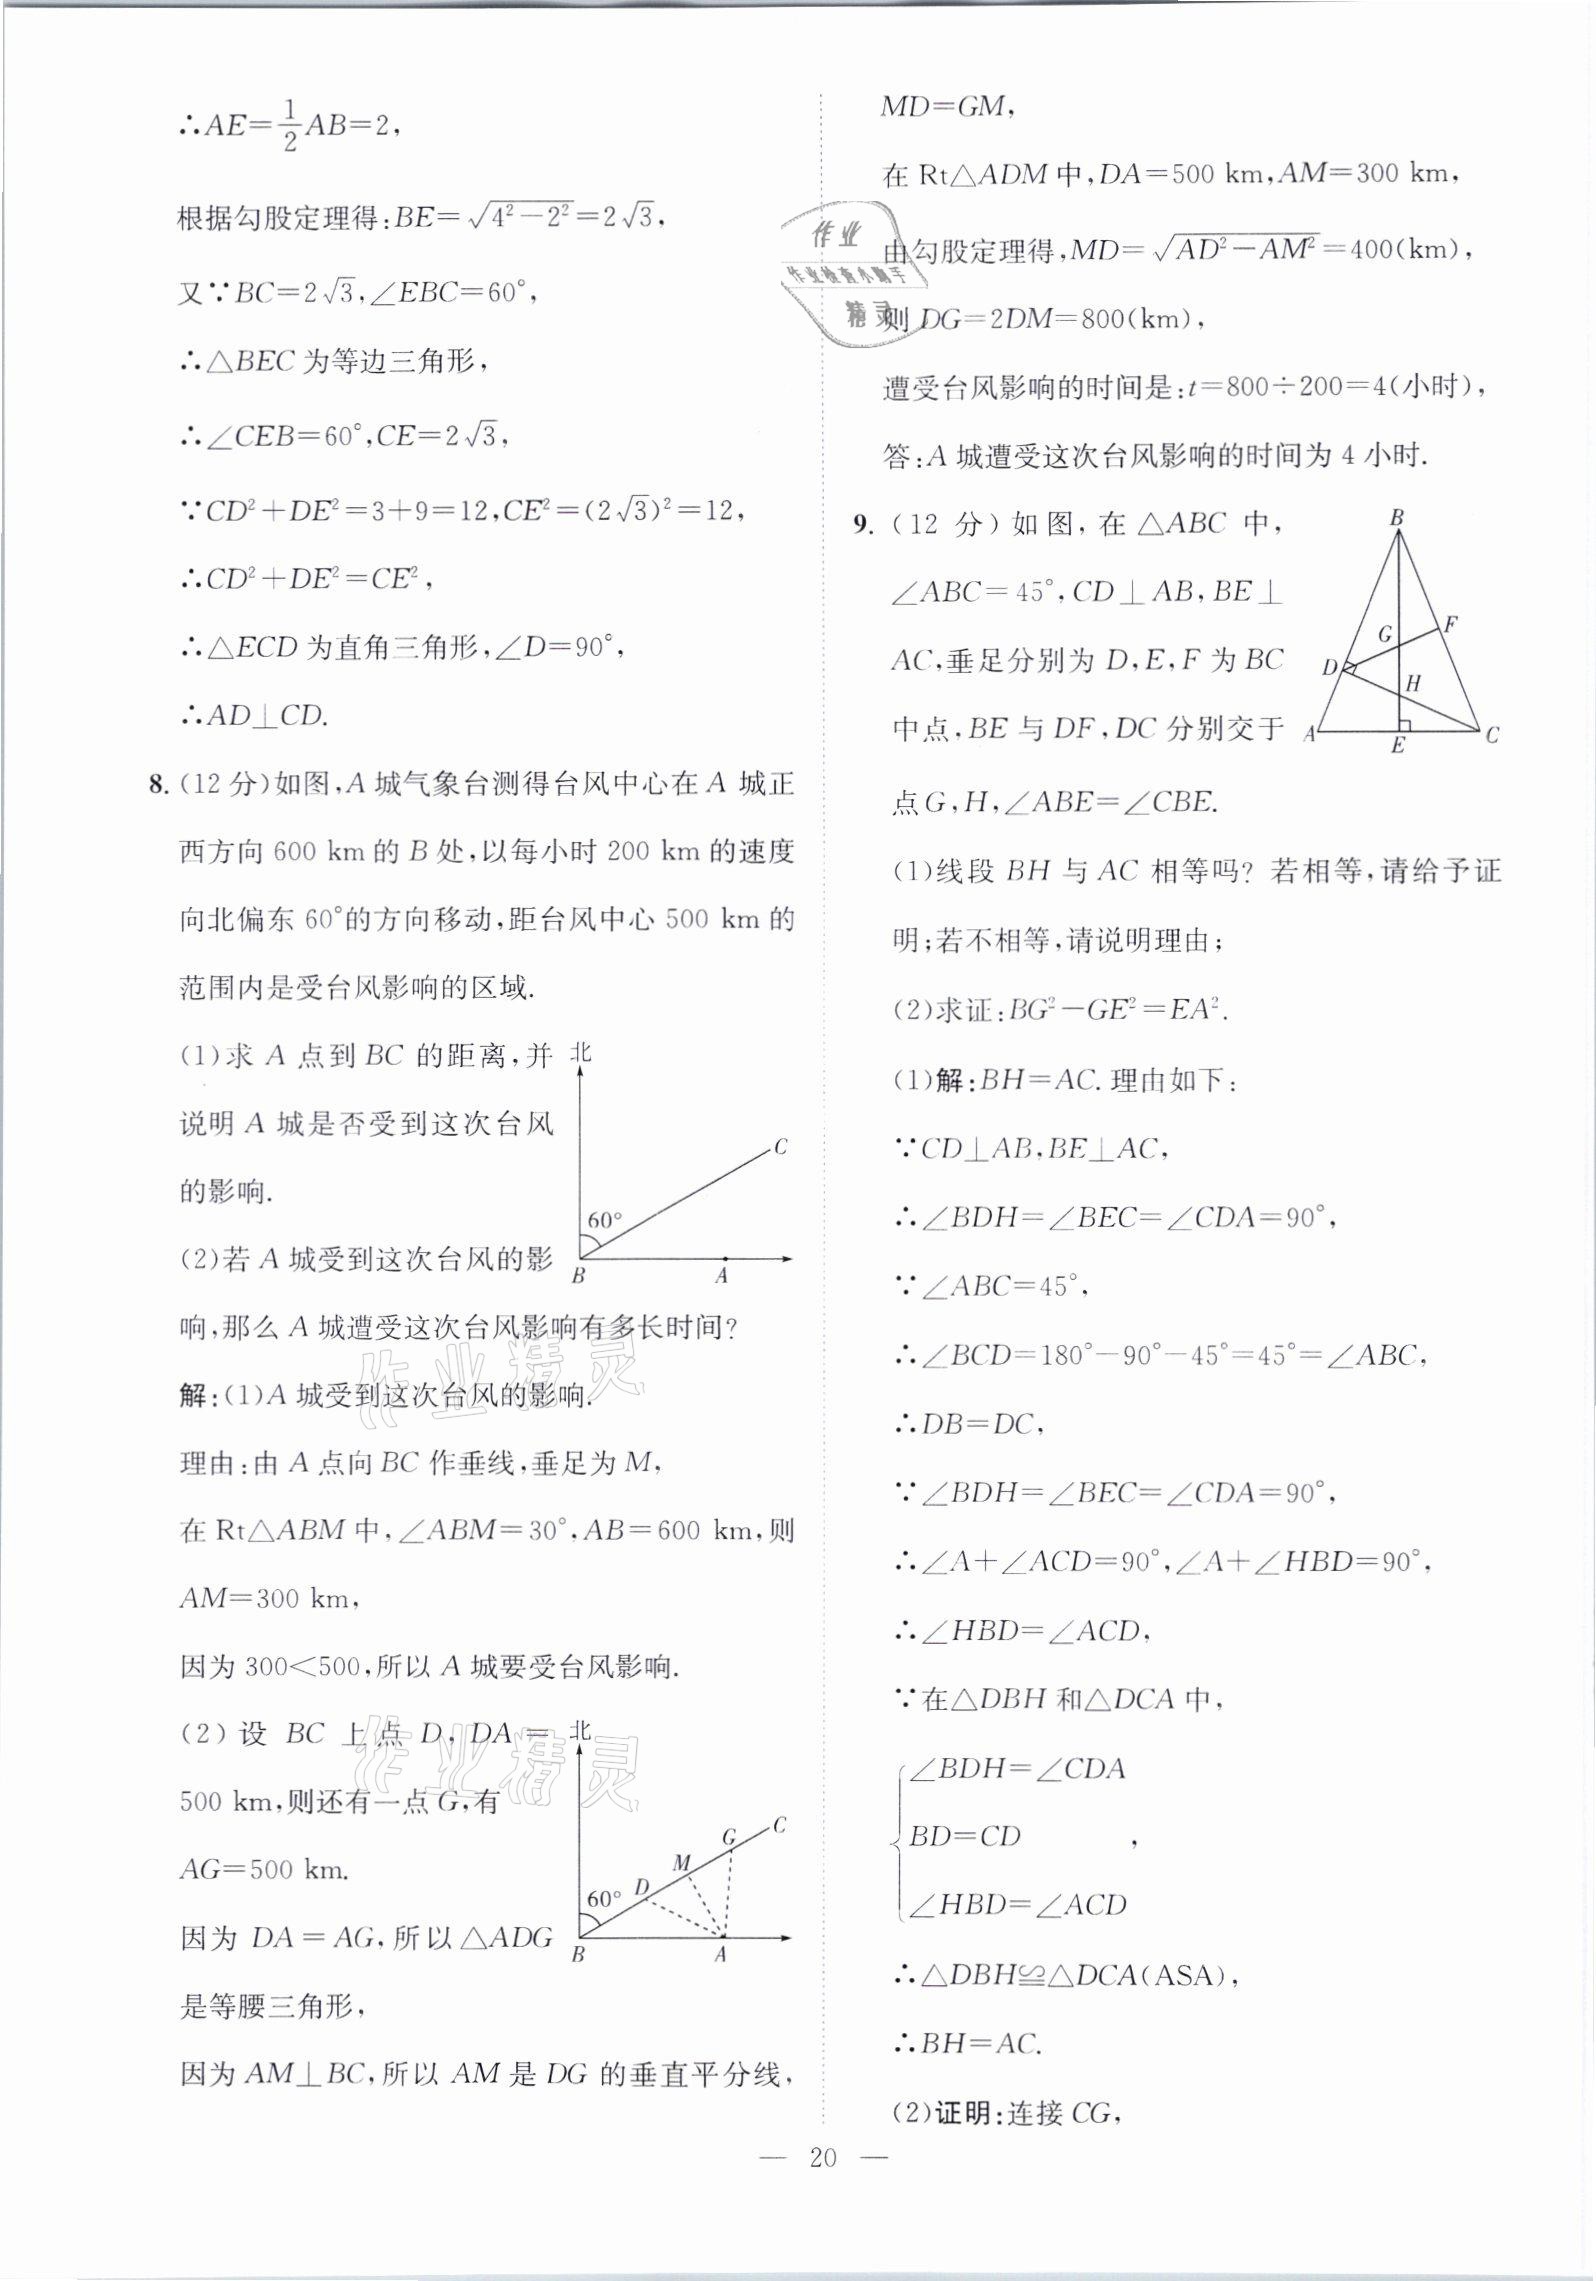 ∴AE=1/2AB=2,
根据勾股定理得:BE=√(4²-2²)=2√3,
又∵BC=2√3,∠EBC=60°,
∴△BEC为等边三角形,
∴∠CEB=60°,CE=2√3,
∵CD²+DE²=3+9=12,CE²=(2√3)²=12,
∴CD²+DE²=CE²,
∴△ECD为直角三角形,∠D=90°,
∴AD⊥CD.
8.(12分)如图,A城气象台测得台风中心在A城正
西方向600 km的B处,以每小时200 km的速度
向北偏东60°的方向移动,距台风中心500 km的
范围内是受台风影响的区域.
(1)求A点到BC的距离,并
说明A城是否受到这次台风
的影响.
(2)若A城受到这次台风的影
响,那么A城遭受这次台风影响有多长时间?
北
C
60°
B
A
解:(1)A城受到这次台风的影响.
理由:由A点向BC作垂线,垂足为M,
在Rt△ABM中,∠ABM=30°,AB=600 km,则
AM=300 km,
因为300<500,所以A城要受台风影响.
(2)设BC上点D,DA=
500 km,则还有一点G,有
AG=500 km.
因为DA=AG,所以△ADG
是等腰三角形,
因为AM⊥BC,所以AM是DG的垂直平分线,
北
C
G
M
D
60°
B
A
MD=GM,
在Rt△ADM中,DA=500 km,AM=300 km,
由勾股定理得,MD=√(AD²-AM²)=400(km),
则DG=2DM=800(km),
遭受台风影响的时间是:t=800÷200=4(小时),
答:A城遭受这次台风影响的时间为4小时.
9.(12分)如图,在△ABC中,
∠ABC=45°,CD⊥AB,BE⊥
AC,垂足分别为D,E,F为BC
中点,BE与DF,DC分别交于
点G,H,∠ABE=∠CBE.
B
F
G
D
H
A
E
C
(1)线段BH与AC相等吗?若相等,请给予证
明;若不相等,请说明理由;
(2)求证:BG²-GE²=EA².
(1)解:BH=AC.理由如下:
∵CD⊥AB,BE⊥AC,
∴∠BDH=∠BEC=∠CDA=90°,
∵∠ABC=45°,
∴∠BCD=180°-90°-45°=45°=∠ABC,
∴DB=DC,
∵∠BDH=∠BEC=∠CDA=90°,
∴∠A+∠ACD=90°,∠A+∠HBD=90°,
∴∠HBD=∠ACD,
∵在△DBH和△DCA中,
∠BDH=∠CDA
BD=CD,
∠HBD=∠ACD
∴△DBH≌△DCA(ASA),
∴BH=AC.
(2)证明:连接CG,
— 20 —
作业
作业检查小助手
精灵
作业精灵
作业精灵